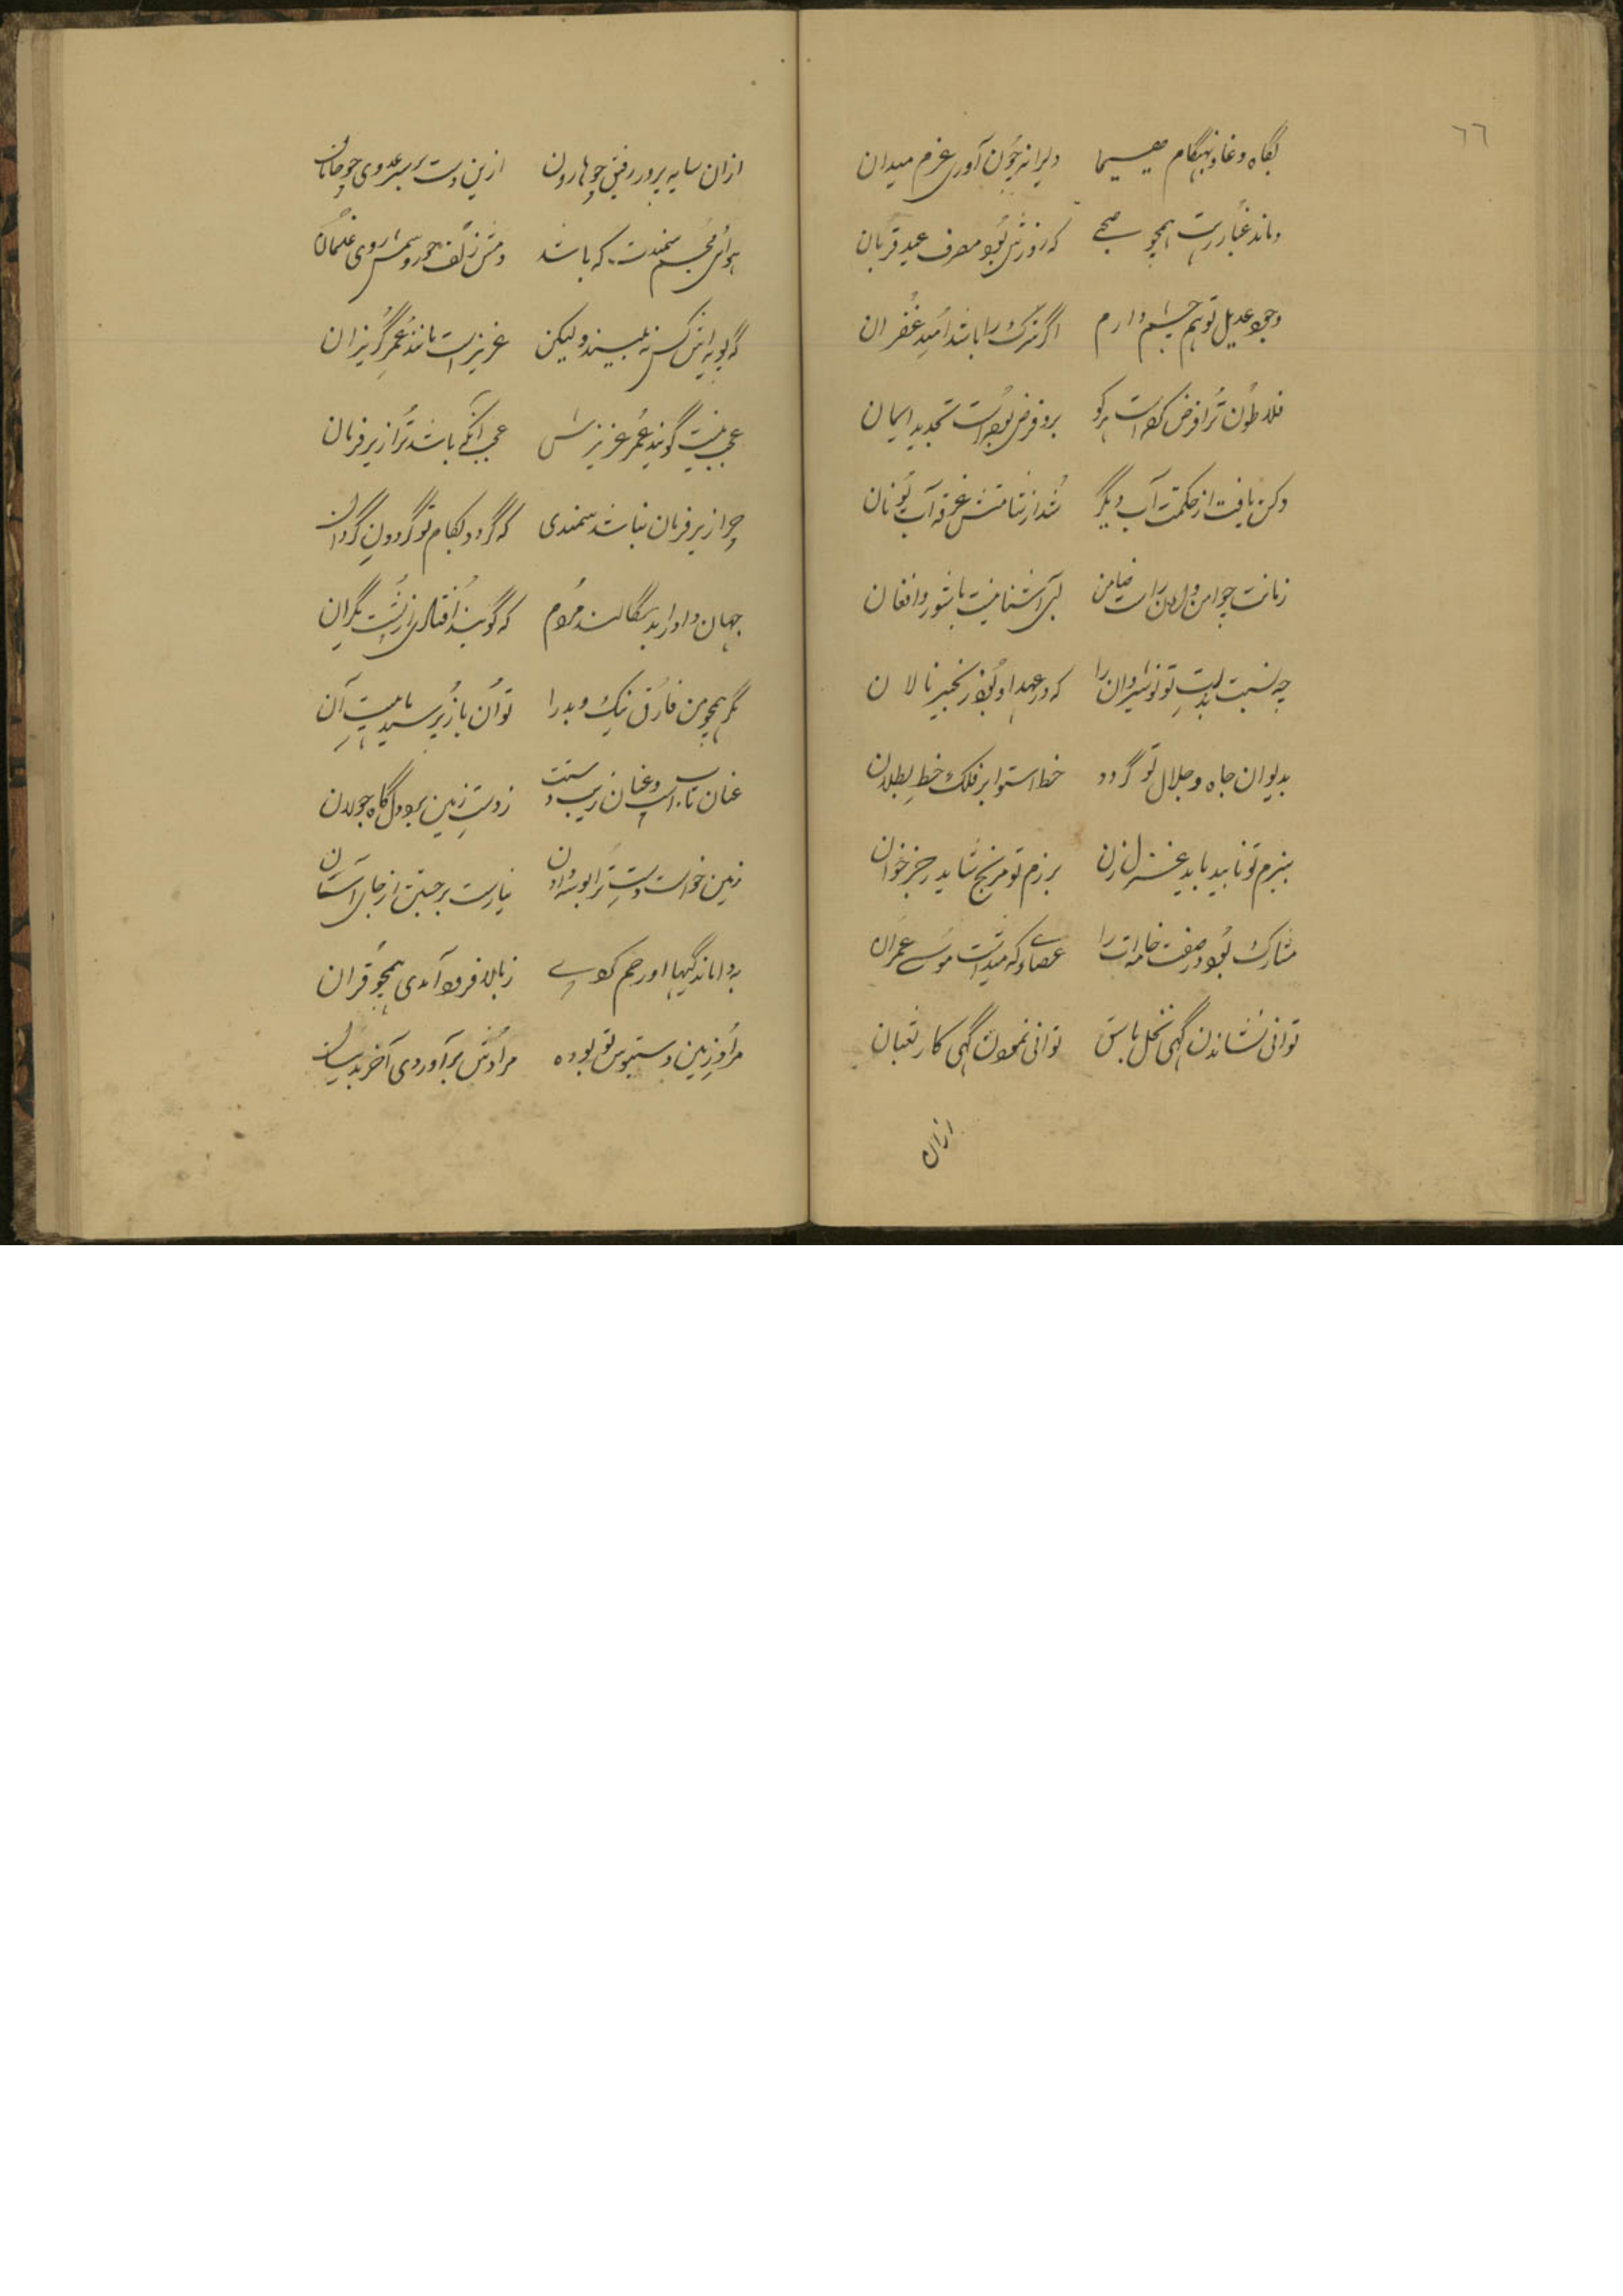 ٦٦
بگاه وغا و بهنگام هیجا دلیرانه چون آوری عزم میدان
دماند غبار رهت همچو صبحی که روزش بود معرف عید قربان
وجود عدیل تو هم چشم دارم اگر شرک را باشد امید غفران
فلاطون ترا فرض کرد است هر کو برو فرض بوده است تجدید ایمان
دکن یافت از حکمتت آب دیگر شد از شامتش غرقه آب یونان
زمانت چو امن و امان راست ضامن کس آشنا نیست با شور و افغان
چه نسبت بذات تو نوشیروان را که در عهد او بود زنجیر نالان
بدیوان جاه و جلال تو گردد خط استوا بر فلک خط بطلان
ببزم تو ناهید باید غزل زن برزم تو مریخ شاید رجز خوان
مشارک بود در صفت خامه ات را عصاوکه میداشت موسی عمران
توانی نشاندن گهی نخل باسق توانی نمودن گهی کار ثعبان
ازان
ازان سایه پرور رفیق چو هارون ازین دست بر سر عدوی چو هامان
هوای مجسم سمندت که باشد دمش زلف حور و سمش روی غلمان
که پویه اش کس نه بیند ولیکن عزیز است مانند عمر گریزان
عجب نیست گویند عمر عزیزش عجب آنکه باشد ترا زیر فرمان
چرا زیر فرمان نباشد سمندی که گردد بکام تو گردون گردان
جهان داورا بد سگالند مردم که گویند افتادی از پشت یکران
مگر همچو من فارق نیک و بد را توان باز پرسید ماهیت آن
عنان تاب اسپ و عنان زیب دستت ز دست زمین بود دل گاه جولان
زمین خواست دست ترا بوسه دادن نیارست برجستن از جای آسان
به واماندگیها او رحم کردی ز بالا فرود آمدی همچو قران
مراد زمین دستبوس تو بوده مرادش برآوردی آخر بدینسان